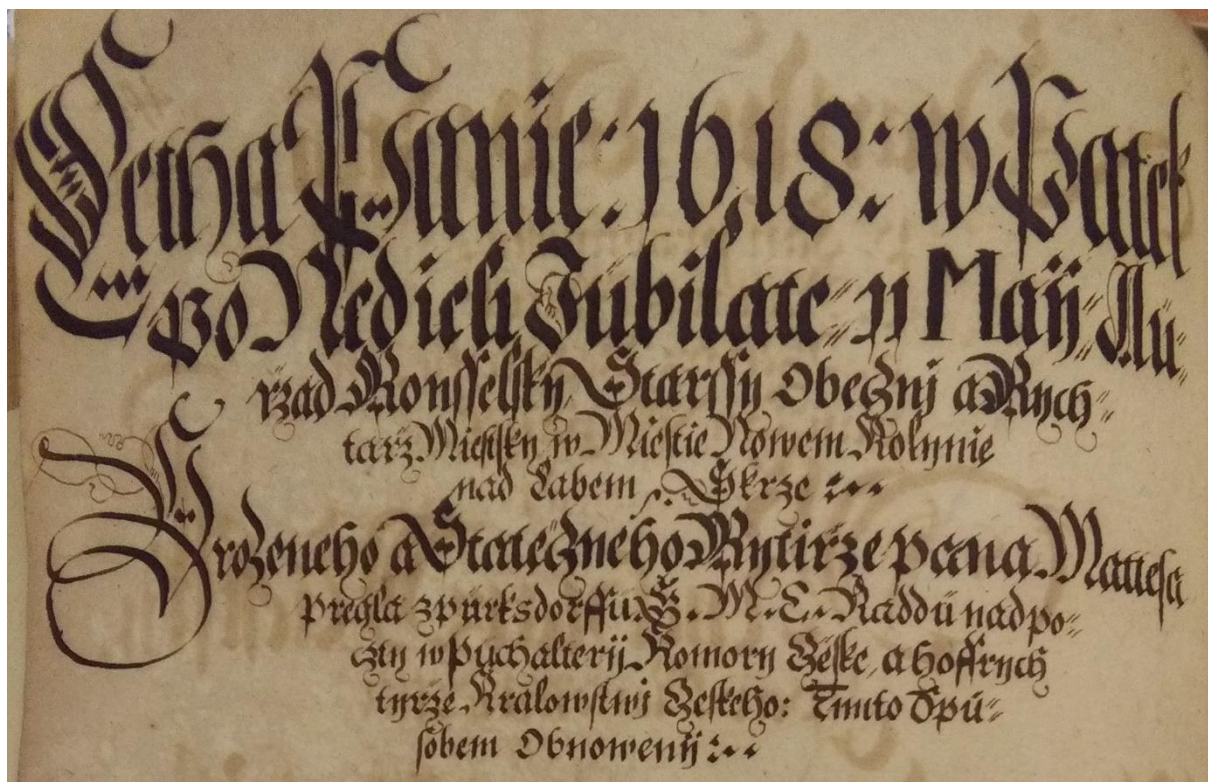 Letha Panie: 1618: w Patek
po Nedieli Jubilate 11 Maÿ Au-
rzad Konsselsky Starssy Obecznj a Rych-
tarz Miestsky w Miestie Nowem Kolynie
nad Labem, Skrze
Vrozeneho a Stateczneho Rytirze pana Mattesa
pregla z purksdorffu G. M. C. Raddu nad po-
czty w Puchalterij Komory Czeske, a hoffrych
tyrze Kralowstwj Czeskeho: Timto Spu-
sobem Obnowenÿ